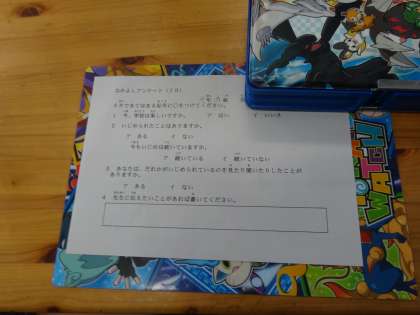 なかよしアンケート（２月）
年 組
１ 今、学校は楽しいですか。 ア はい イ いいえ
２ いじめられたことはありますか。
ア ある イ ない
今もいじめは続いていますか。
ア 続いている イ 続いていない
３ あなたは、だれかがいじめられているのを見たり聞いたりしたことが
ありますか。
ア ある イ ない
４ 先生に伝えたいことがあれば書いてください。
WATCH